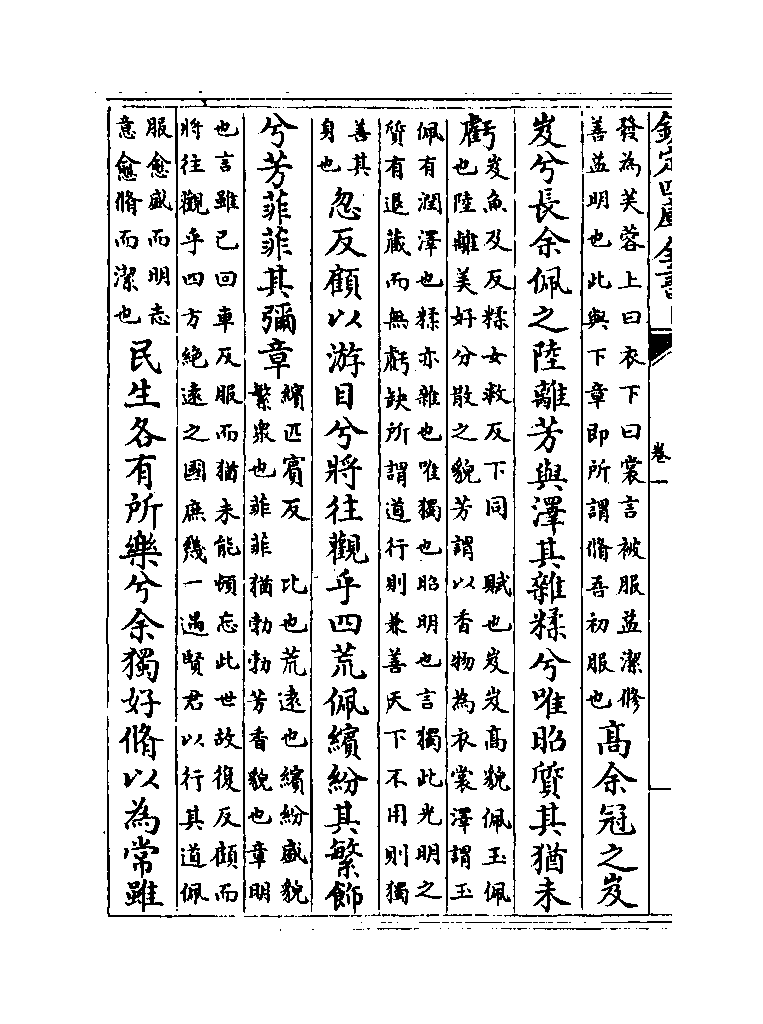 欽定四庫全書
卷一
發為芙蓉上曰衣下曰裳言被服益潔修
善益明也此與下章即所謂脩吾初服也
高余冠之岌
岌兮長余佩之陸離芳與澤其雜糅兮唯昭質其猶未
虧
岌魚及反糅女救反下同 賦也岌岌高貌佩玉佩
也陸離美好分散之貌芳謂以香物為衣裳澤謂玉
佩有潤澤也糅亦雜也唯獨也昭明也言獨此光明之
質有退藏而無虧缺所謂道行則兼善天下不用則獨
善其
身也
忽反顧以游目兮將往觀乎四荒佩繽紛其繁飾
兮芳菲菲其彌章
繽匹賓反 比也荒遠也繽紛盛貌
繁衆也菲菲猶勃勃芳香貌也章明
也言雖已回車反服而猶未能頓忘此世故復反顧而
將往觀乎四方絶遠之國庶幾一遇賢君以行其道佩
服愈盛而明志
意愈脩而潔也
民生各有所樂兮余獨好脩以為常雖